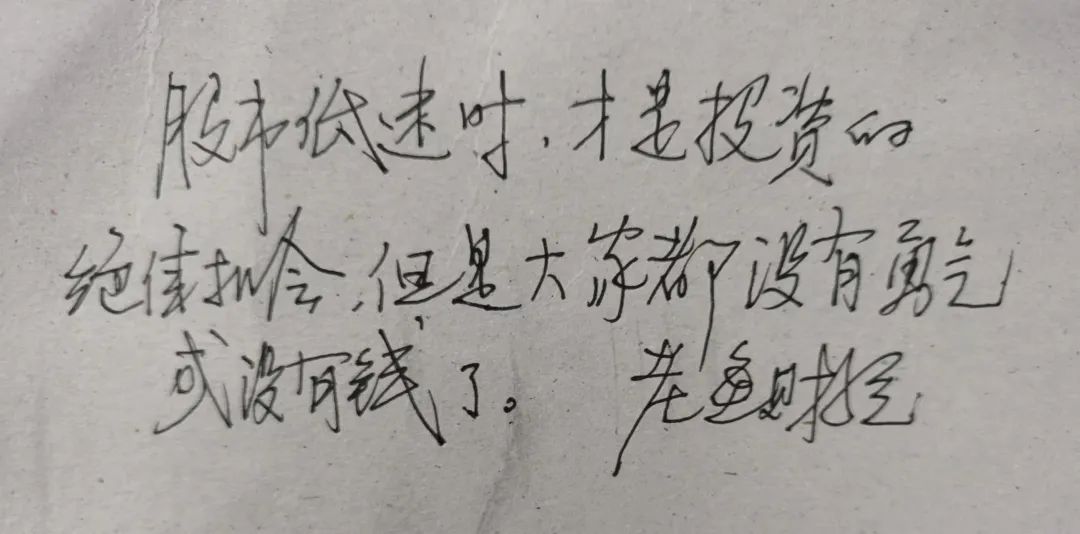 股市低迷时，才是投资的
绝佳机会，但是大家都没有勇气
或没有钱了。 老鱼财挖